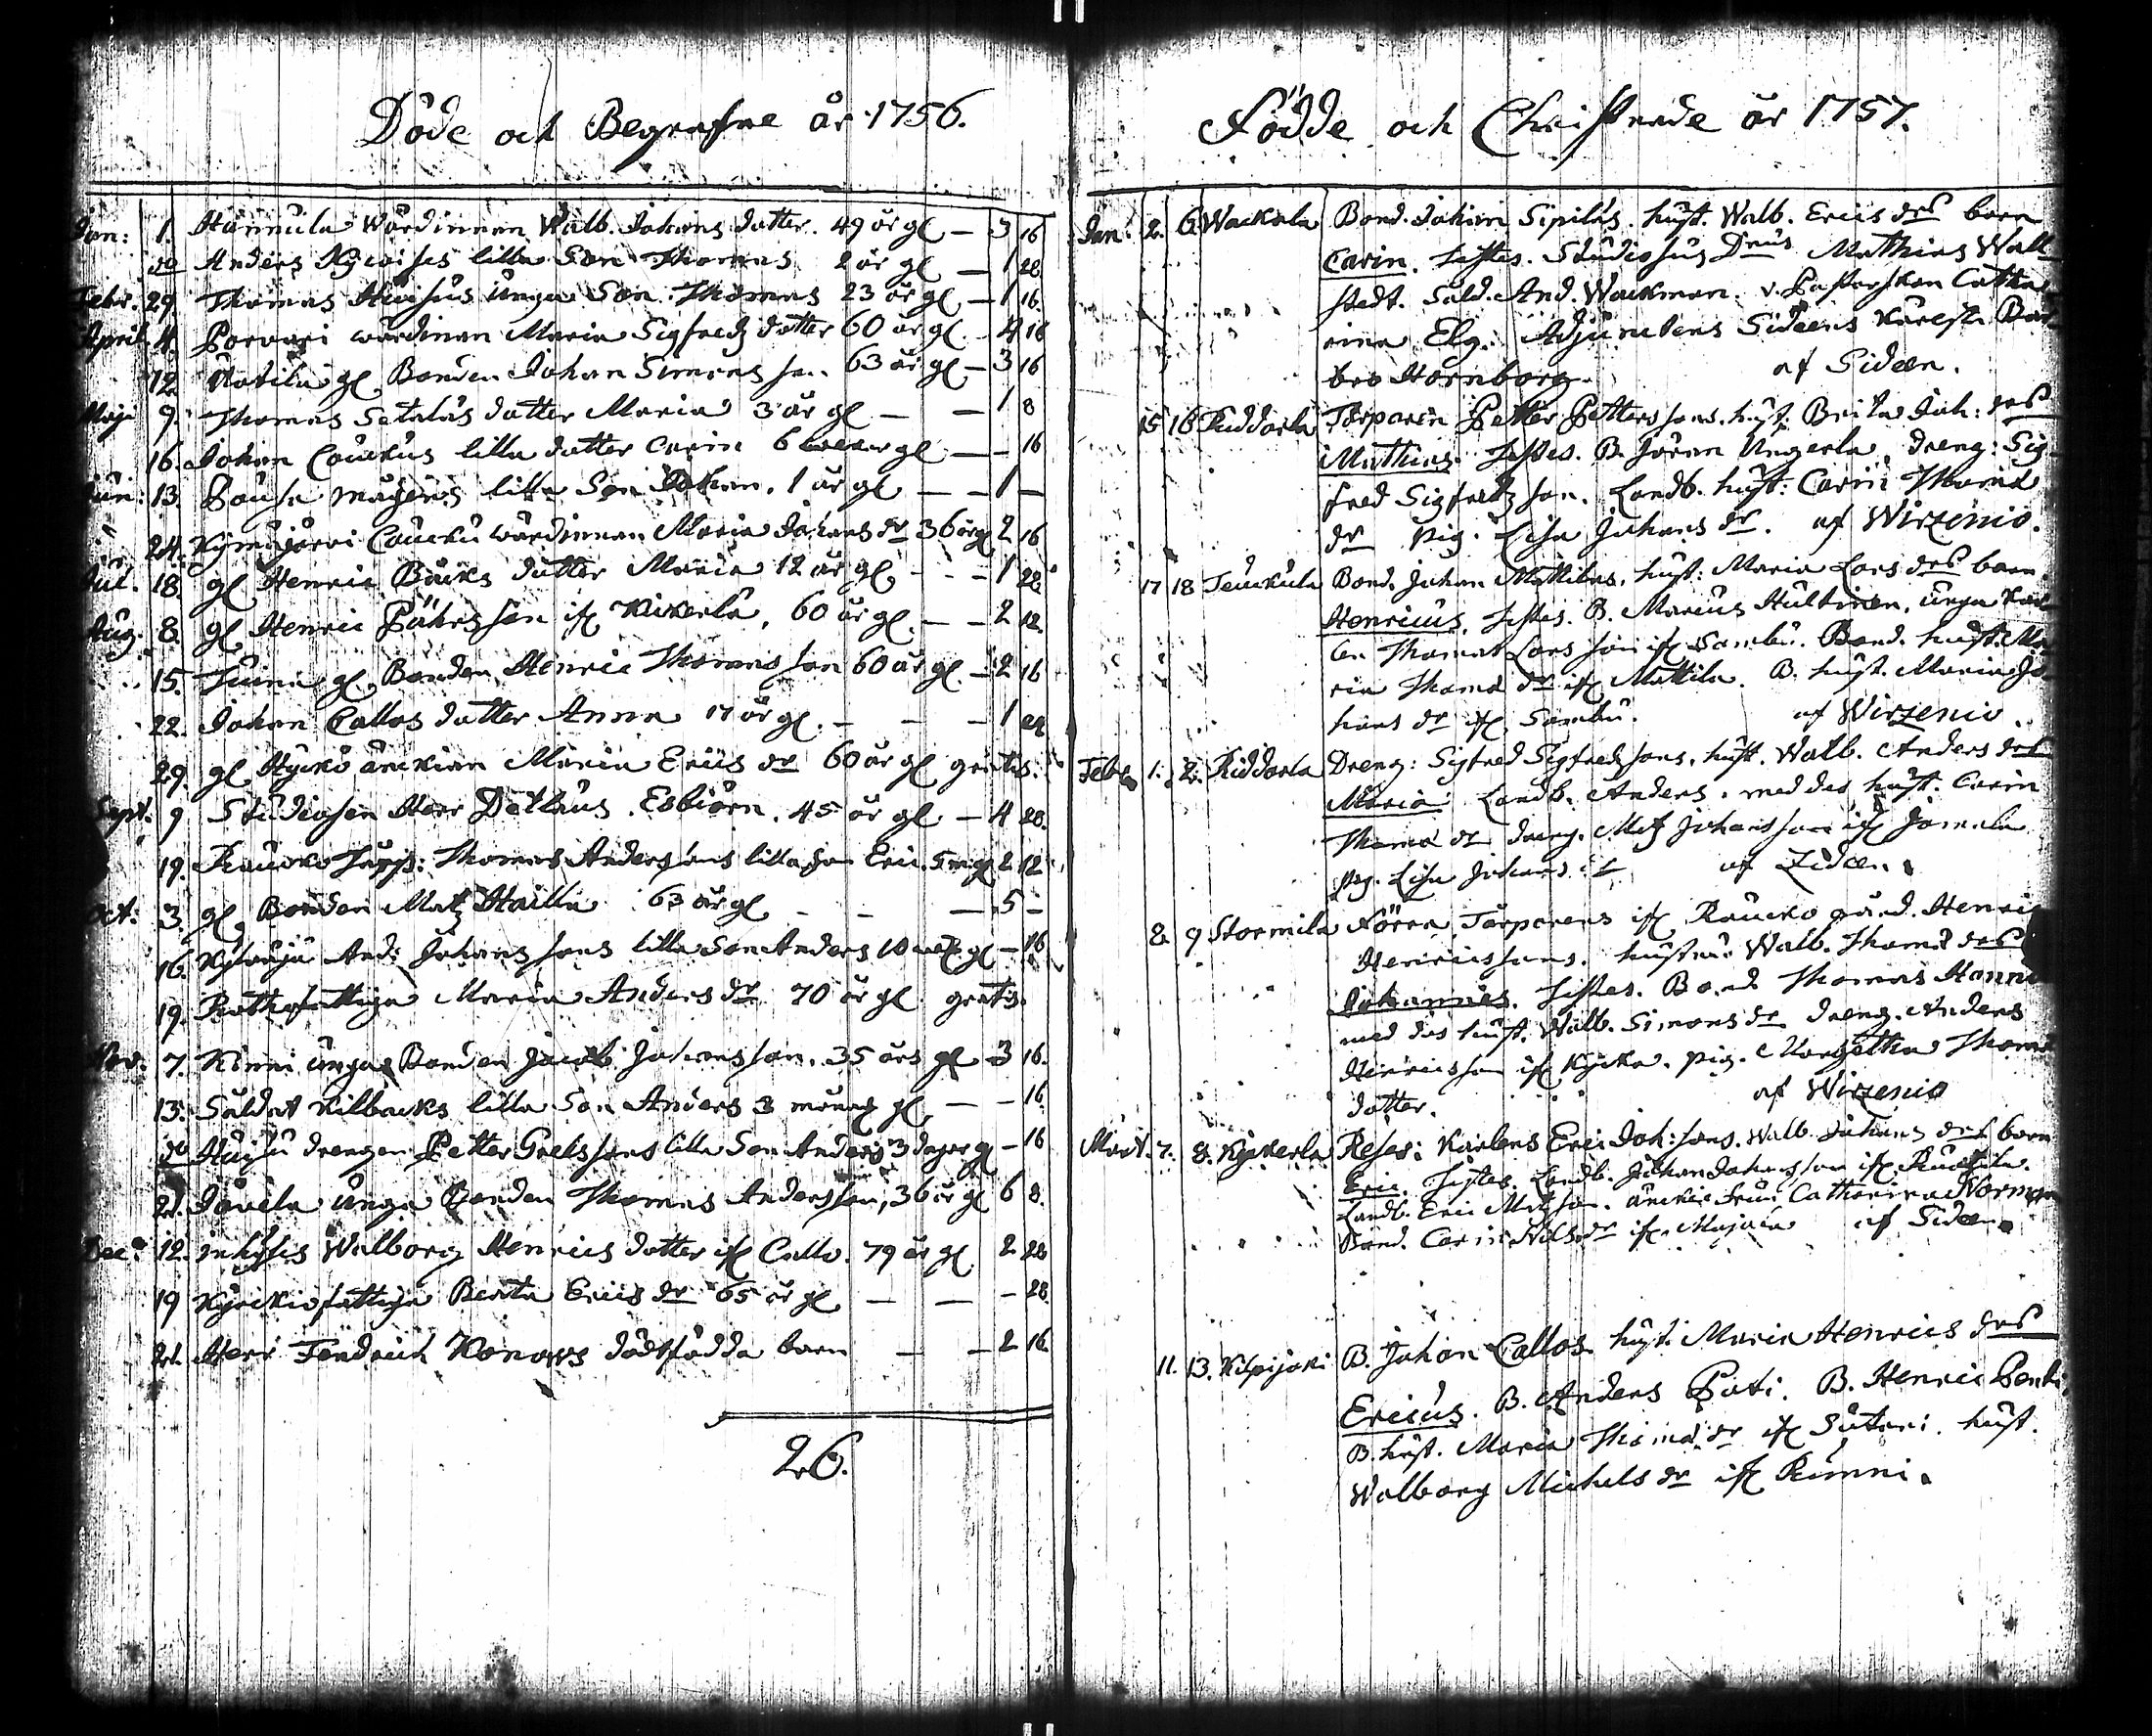 Döde och Begrafne år 1756.
Jan: 1. Hannula Wärdinnan Walb. Johans dotter. 49 år gl — 3 16
do Anders lilla Son Thomas 2 år gl — 1 28
Febr. 29. Thomas unga Son Thomas 23 år gl — 1 16.
April 4. Porvari wärdinnan Maria Sigfreds dotter 60 år gl. 4 16
12. gl Bonden Johan Simons son 63 år gl — 3 16
Maji 9. Thomas Setaläs dotter Maria 3 år gl — — 1 8
16. Johan Couckus lilla dotter Carin 6 weckor gl — — 16
Jun: 13. lilla Son Johan. 1 år gl — — 1 —
24. Kymijärvi Coucku wärdinnan Maria Johans dr 36 år gl 2 16
Jul. 18. gl Henric Bäcks dotter Maria 12 år gl — — 1 28
Aug. 8. gl Henric Påhrs son ifr Kickerla, 60 år gl. — — 2 12.
15. gl Bonden Henric Thomas son 60 år gl. — 2 16
22. Johan Callos dotter Anna 17 år gl. — — — 1 24
29. gl änckian Maria Erics dr 60 år gl gratis.
Sept. 9 Studiosen Herr Esbiörn. 45 år gl — 4 28.
19. Raucko Thomas Anders sons lilla son Eric. 5 m gl 2 12
Oct: 3. gl Bonden Matz Hailla 63 år gl — — — 5 —
16. And: Johans sons lilla Son Anders 10 gl — 16
19. Rothefattiga Maria Anders dr 70 år gl gratis.
Nov. 7. Kinni unga Bonden Jacob Johans son. 35 års gl 3 16.
13. Soldat Kilbacks lilla Son Anders 3 månad gl. — — 16
do drengen Petter Grels sons lilla Son Anders 3 dagar gl — 16
21. Jåvela unga Bonden Thomas Anders son, 36 år gl 6 8.
Dec: 12. inhyses Walborg Henrics dotter ifr Callo. 79 år gl 2 28
19 Kyrckiofattiga Berta Erics dr 65 år gl — — — 28.
Herr Fendrich Konows dödfödda barn — — 2 16
26.
Födde och Christnade år 1757.
Jan. 2. 6 Wackala Bond. Johan Sipiläs. hust. Walb. Erics drs barn
Carin. testes. Studiosus Dnus Mathias Wall
stedt. Sold. And. Wackman. v. Pastorskan Catha
rina Elg. Adjunctens Sideens Kärest. Bar
bro Hornborg. af Sideen.
15 16 Riddarla Torparen Petter Petters sons. hust. Brita Joh: drs
Mathias. testes. B. Jöran Ungerla, dreng: Sig
fred Sigfredz son. Landb. hust: Carin Thomæ
dr pig. Lisa Johans dr. af Wirzenio.
17 18 Teuckula Bond. Johan Mattilas. hust: Maria Lars drs barn.
Henricus. testes. B. Marcus Hultinen. unga Kar
len Thomas Lars son ifr Sambu. Bond. hust. Ma
ria Thomæ dr ifr Mattila. B. hust. Maria Jo
hans dr ifr Sambu. af Wirzenio.
Febr. 1. 2. Riddarla Dreng: Sigfred Sigfredz sons. hust. Walb. Anders drs
Maria Landb. Anders. med des hust. Carin
Thomæ dr dreng. Matz Johans son ifr Jamala
pig. Lisa Johans dr af Zideen.
8 9 Stormila Norra Torparens ifr Raucko gård. Henric
Henrics sons. hustru. Walb. Thomæ drs
Johannes. testes. Bond Thomas Hannu
med des hust. Walb. Simons dr dreng. Anders
Henrics son ifr Kycka. pig. Margetha Thomæ
dotter. af Wirzenio
Mart. 7. 8. Kickerla Reser: Karlens Eric Joh: sons. Walb. Johans drs barn
Eric. testes. Landb. Johan Johans son ifr
Landb. Eric Mats son. änckie fru Catharina Norman
Bond. Carin Nils dr ifr. Majala af Sideen.
11. 13. Kilpijoki B. Johan Callos hust. Maria Henrics drs
Ericus. B. Anders Pati. B. Henric Pentti
B. hust. Maria Thomæ dr ifr Sutari. hust.
Walborg Michels dr ifr Rumni.